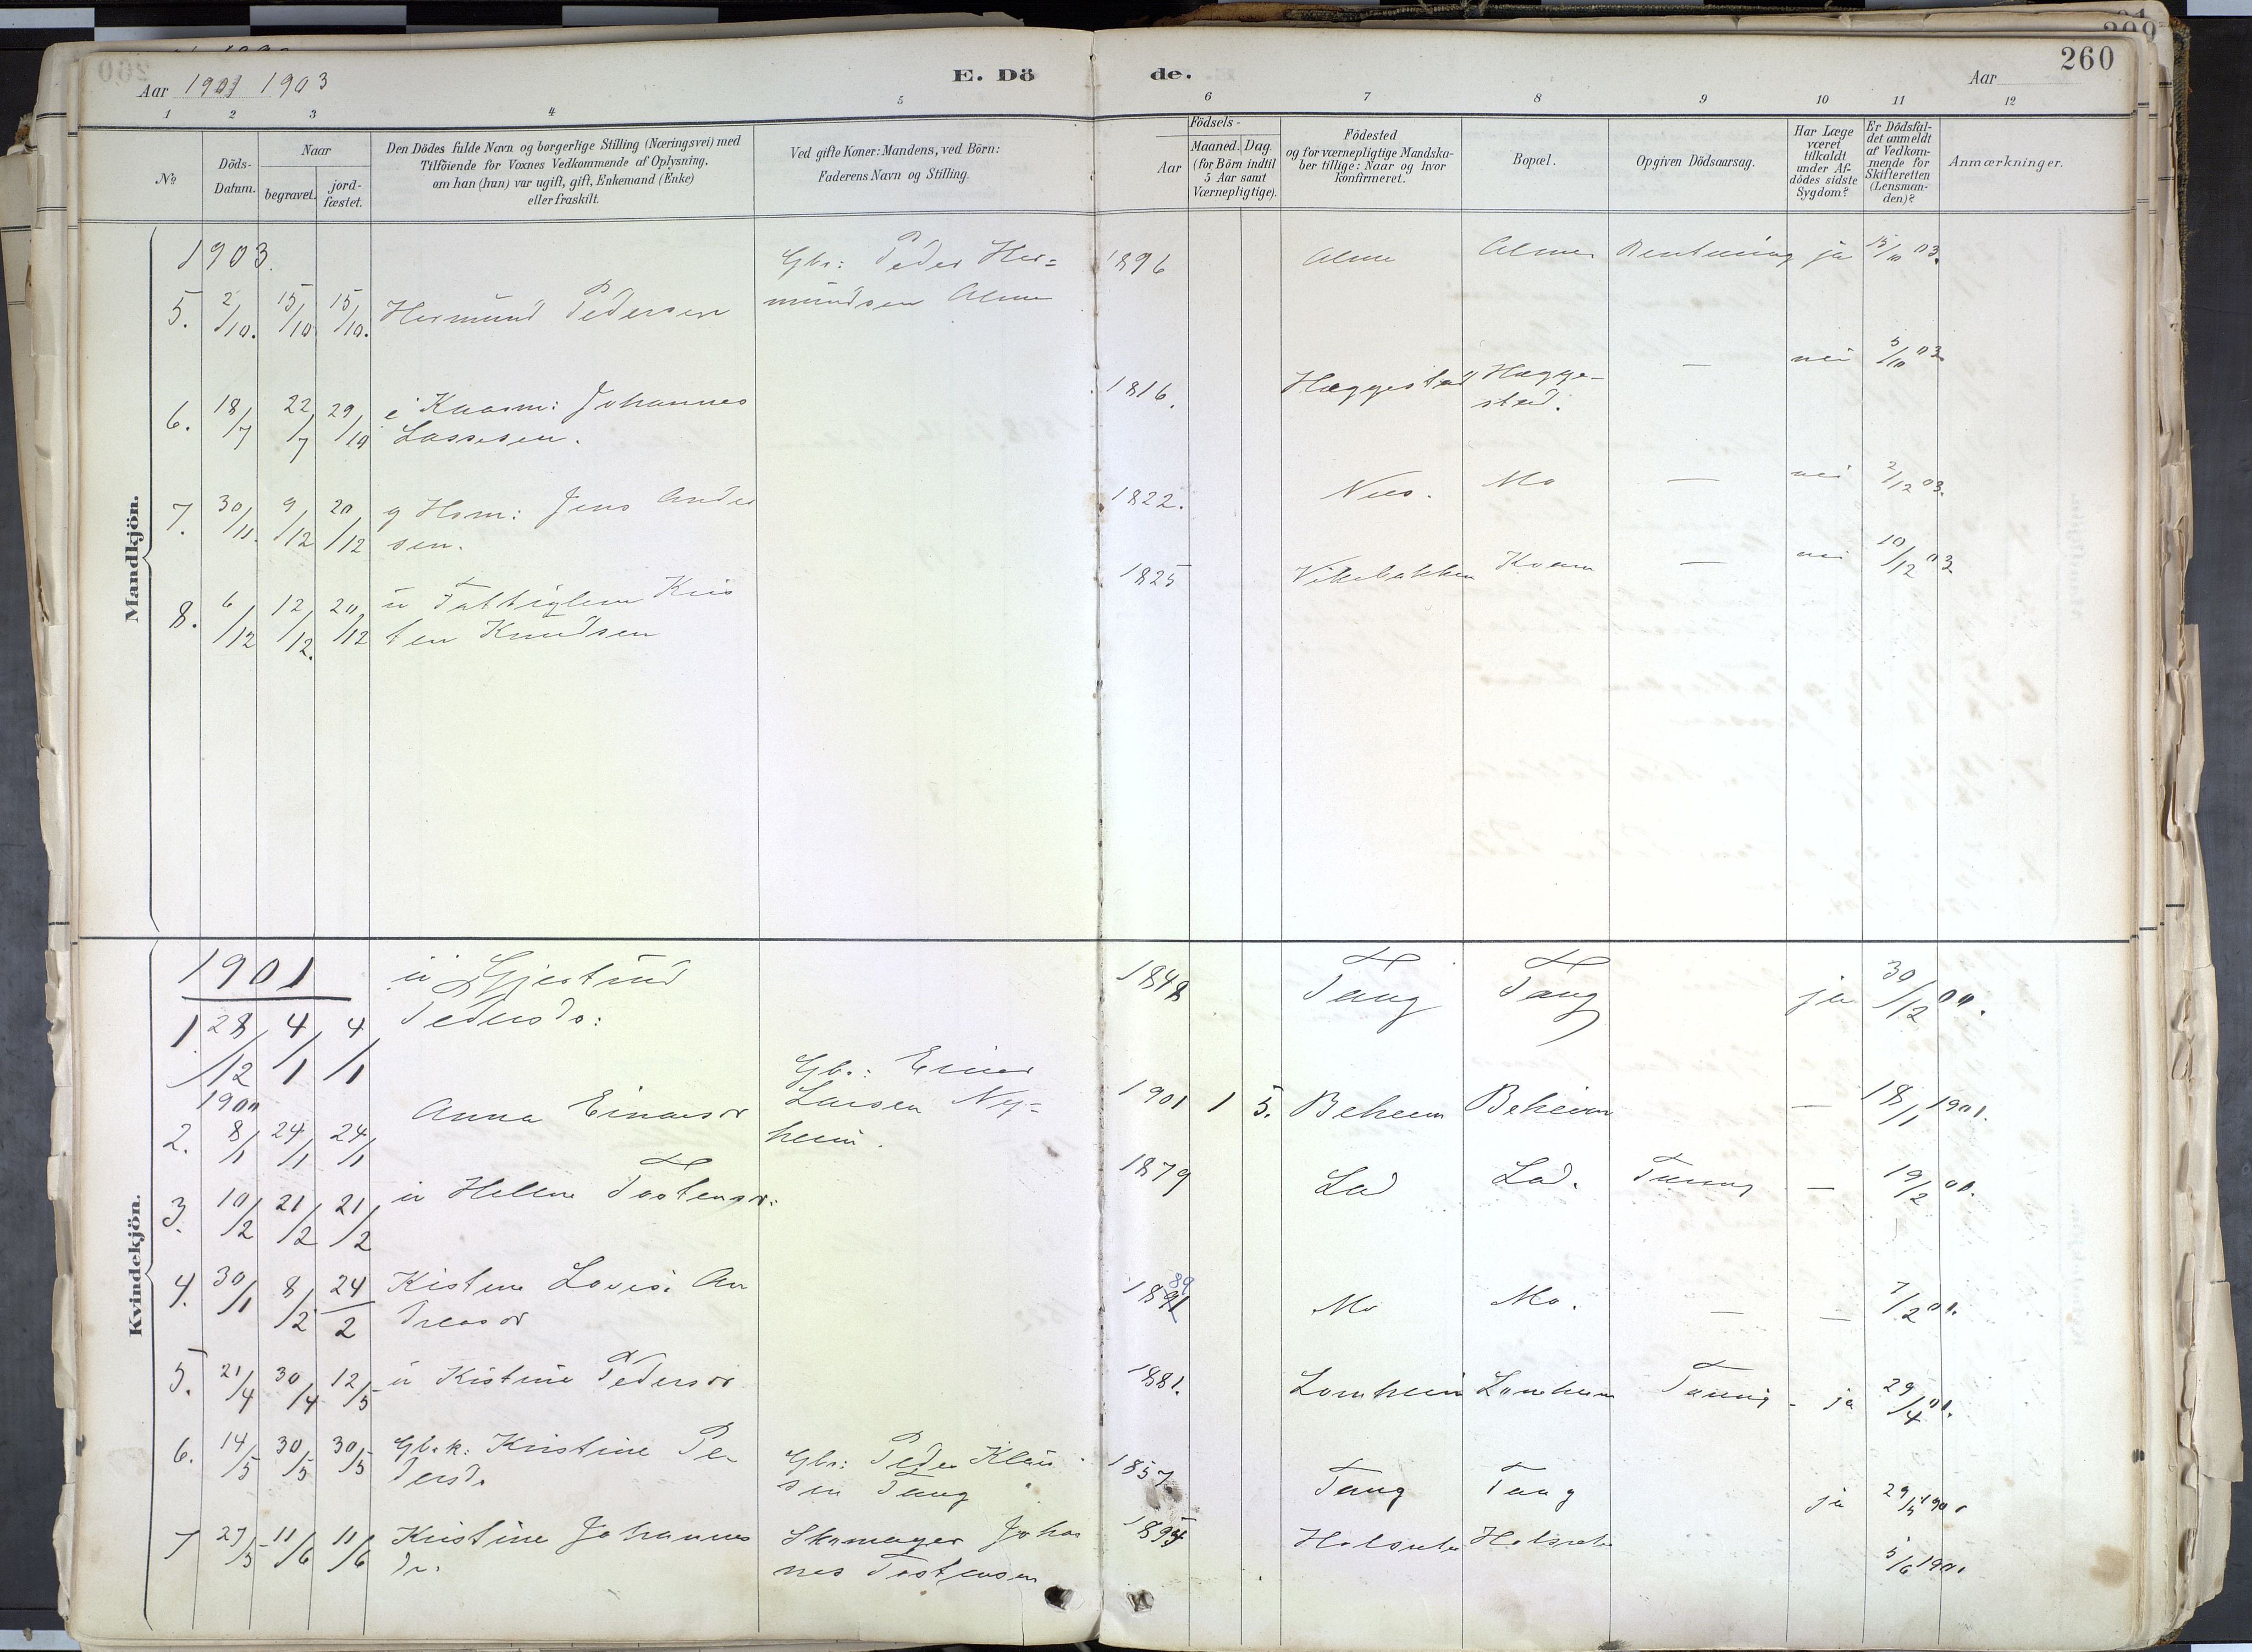 260
Aar 1901 1903
E. Dö de.
Aar
1 2 3 4 5 6 7 8 9 10 11 12
№
Döds-Datum.
Naar
begravet.
jord-fæstet.
Den Dödes fulde Navn og borgerlige Stilling (Næringsvei) med
Tilföiende for Voxnes Vedkommende af Oplysning,
om han (hun) var ugift, gift, Enkemand (Enke)
eller fraskilt.
Ved gifte Koner: Mandens, ved Börn:
Faderens Navn og Stilling.
Födsels-
Aar
Maaned. Dag.
(for Börn indtil
5 Aar samt
Værnepligtige).
Födested
og for værnepligtige Mandska-
ber tillige: Naar og hvor
konfirmeret.
Bopæl.
Opgiven Dödsaarsag.
Har Læge
været
tilkaldt
under Af-
dödes sidste
Sygdom?
Er Dödsfal-
det anmeldt
af Vedkom-
mende for
Skifteretten
(Lensman-
den)?
Anmærkninger.
Mandkjön.
1903.
5. 2/10. 15/10 15/10. Hermund Pedersen
Gbr: Peder Her=
mundsen Alme
1896 Alme Alme ja 15/10 03.
6. 18/7 22/7 29/10 e Kaarm: Johannes
Lassesen.
1816. Hæggestad Hægge-
stad. — nei 5/10 03
7. 30/11. 9/12 20/12 g Hsm: JensAnder
sen.
1822. Nes. Mo — nei 2/12 03.
8. 6/12 12/12. 20/12 u Fattiglem Kris
ten Knudsen
1825 Vikebakken Kvam — nei 10/12 03
Kvindekjön.
1901
1 28/12 1900 4/1 4/1 u Gjertrud
Pedersd:
1848 Tang Tang ja 30/12 00.
2. 8/1 24/1 24/1 Anna Einarsd
Gbr: Einar
Larsen Ny=
heim.
1901 1 5. Beheim Beheim — 18/1 1901.
3. 10/2 21/2 21/2 u Hellene Tostensd:
1879 Lad Lad. Tæring — 19/2 01.
4. 30/1 8/2 24/2 Kistine Lovise An
dreasd
1891 89 Mo Mo. — — 7/2 01.
5. 21/4 30/4 12/5 u Kistine Pedersd
1881. Lomheim Lomheim Tæring - ja 29/4 01.
6. 14/5 30/5 30/5 Gbrk: Kristine Pe-
dersd.
Gbr: Peder Klau
sen Tang
1857 Tang Tang ja 29/5 1901
7 27/5 11/6 11/6 Kristine Johannes
dr.
Skomager Johan
nes Tostensen
1895 Holsæter Holsæter 5/6 1901